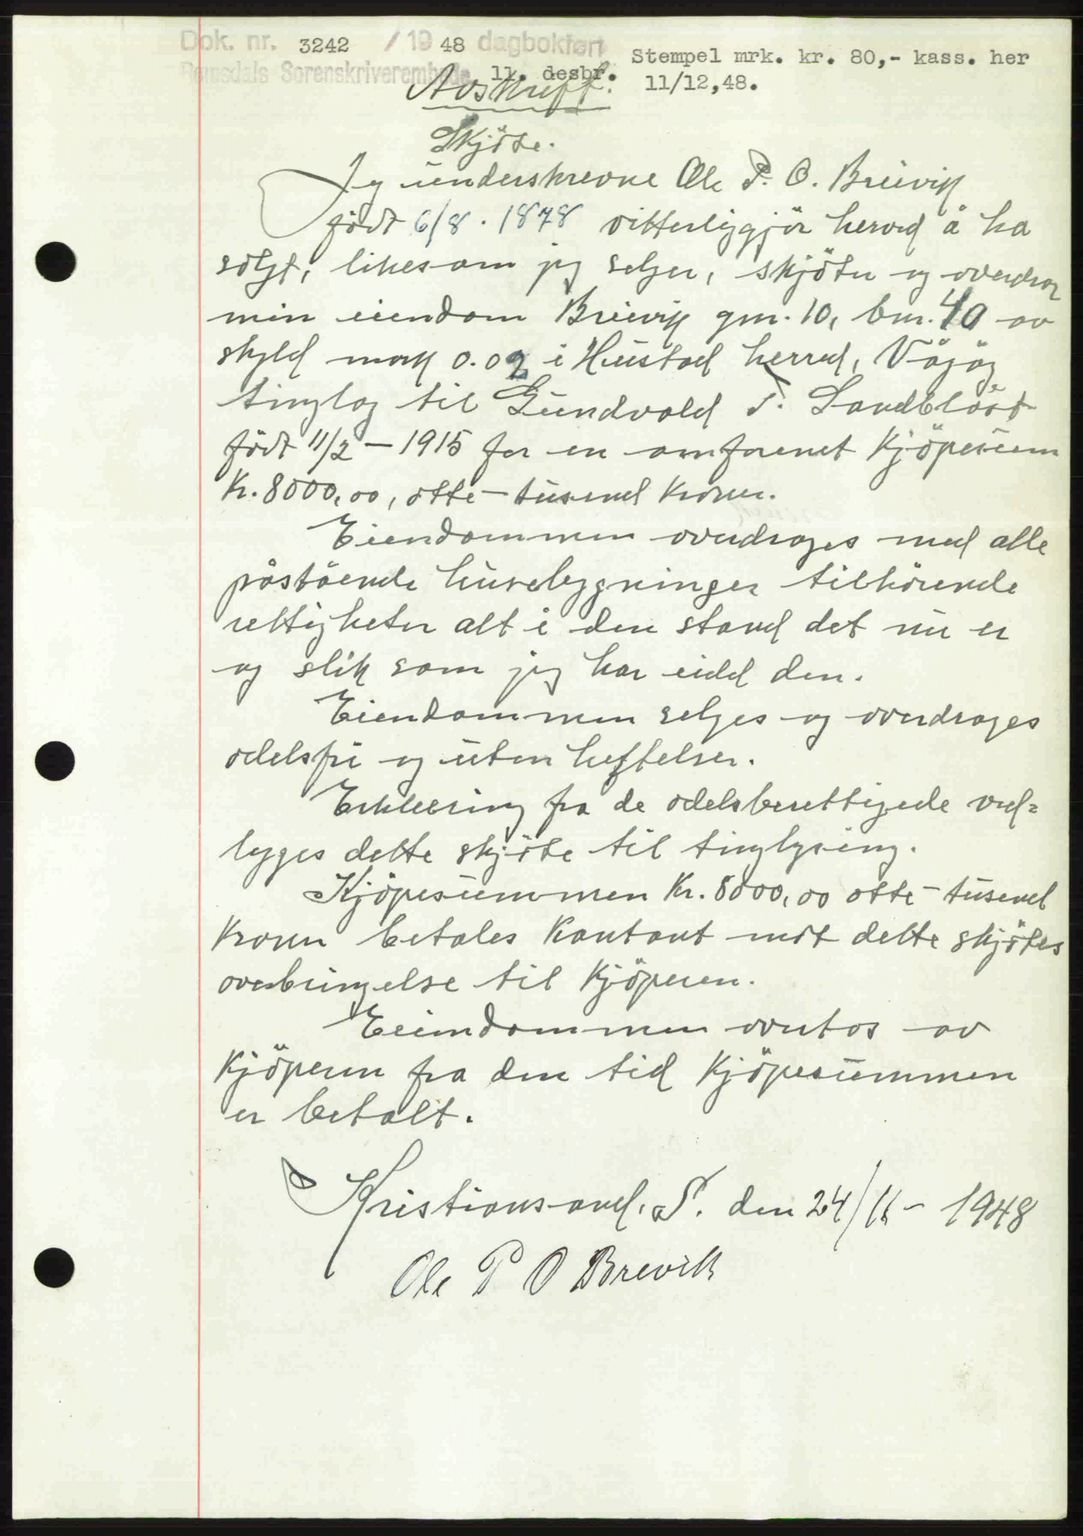 Dok. nr. 3242 / 19 48 dagbokført
Stempel mrk. kr. 80,- kass. her
Romsdals Sorenskriverembede 11. desbr.
11/12,48.
Avskrift.
Skjöte.
Jeg underskrevne Ole P. O. Breivik
födt 6/8. 1878 vitterliggjör herved å ha
solgt, likesom jeg selger, skjöter og overdrar
min eiendom Breivik gnr. 10, bnr. 40 av
skyld mark 0.02 i Hustad herred, Vågöy
tinglag til Gundvald T. Sandblåst
födt 11/2 - 1915 for en omforenet Kjöpesum
Kr. 8000,00, otte-tusend kroner.
Eiendommen overdrages med alle
påstående husebygninger tilhörende
rettigheter alt i den stand det nu er
og slik som jeg har eidd den.
Eiendommen selges og overdrages
odelsfri og uten heftelser.
Erklæring fra de odelsberettigede ved=
lyges dette skjöte til tinglysing.
Kjöpesummen Kr. 8000,00 otte-tusend
kroner betales kontant mot dette skjötes
overbringelse til Kjöperen.
Eeindommen overtas av
Kjöperen fra den tid Kjöpesummen
er betalt.
Kristiansand. S. den 24/11 - 1948
Ole P O Brevik